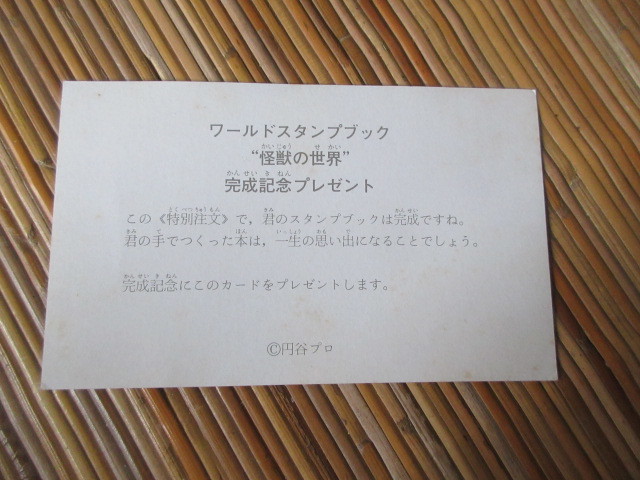 ワールドスタンプブック
“怪獣の世界”
完成記念プレゼント
この《特別注文》で，君のスタンプブックは完成ですね。
君の手でつくった本は，一生の思い出になることでしょう。
完成記念にこのカードをプレゼントします。
©円谷プロ